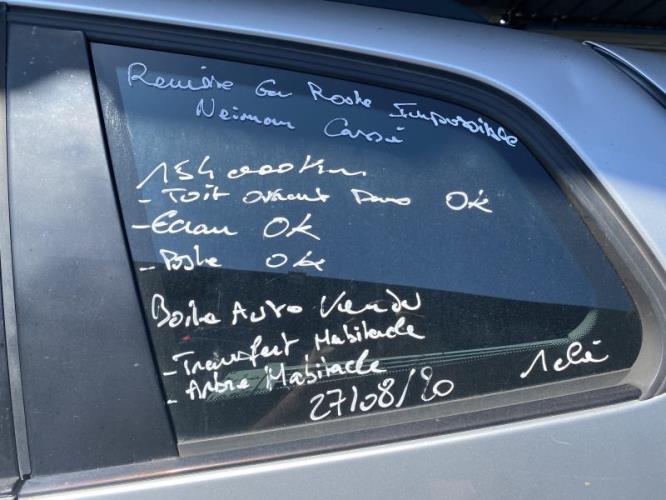 Remise En Route Impossible
Neiman Cassé
154 000 Km
- Toit ouvrant Pano OK
- Ecran OK
- Poste OK
Boite Auto Vendu
- Transfert Habitacle
- Arbre Habitacle
27/08/20
1 clé